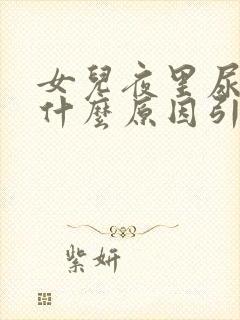 女兒夜里尿
什麼原因引
紫妍